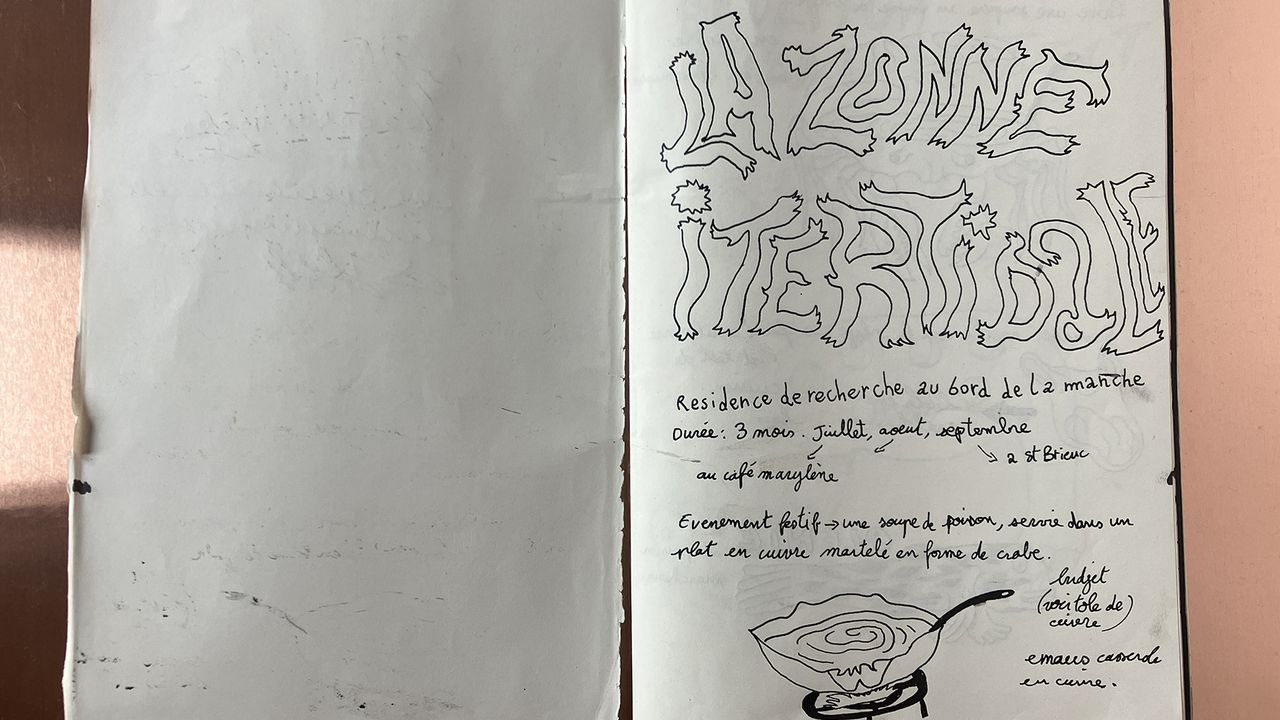 LA ZONNE
iTERTiDALE
Residence de recherche au bord de la manche
Durée: 3 mois. Juillet, aoeut, septembre
a st Brieuc
au café marylène
Evenement festif → une soupe de poisson, servie dans un
plat en cuivre martelé en forme de crabe.
budget
(voir tole de)
cuivre
emaus casserole
en cuivre.